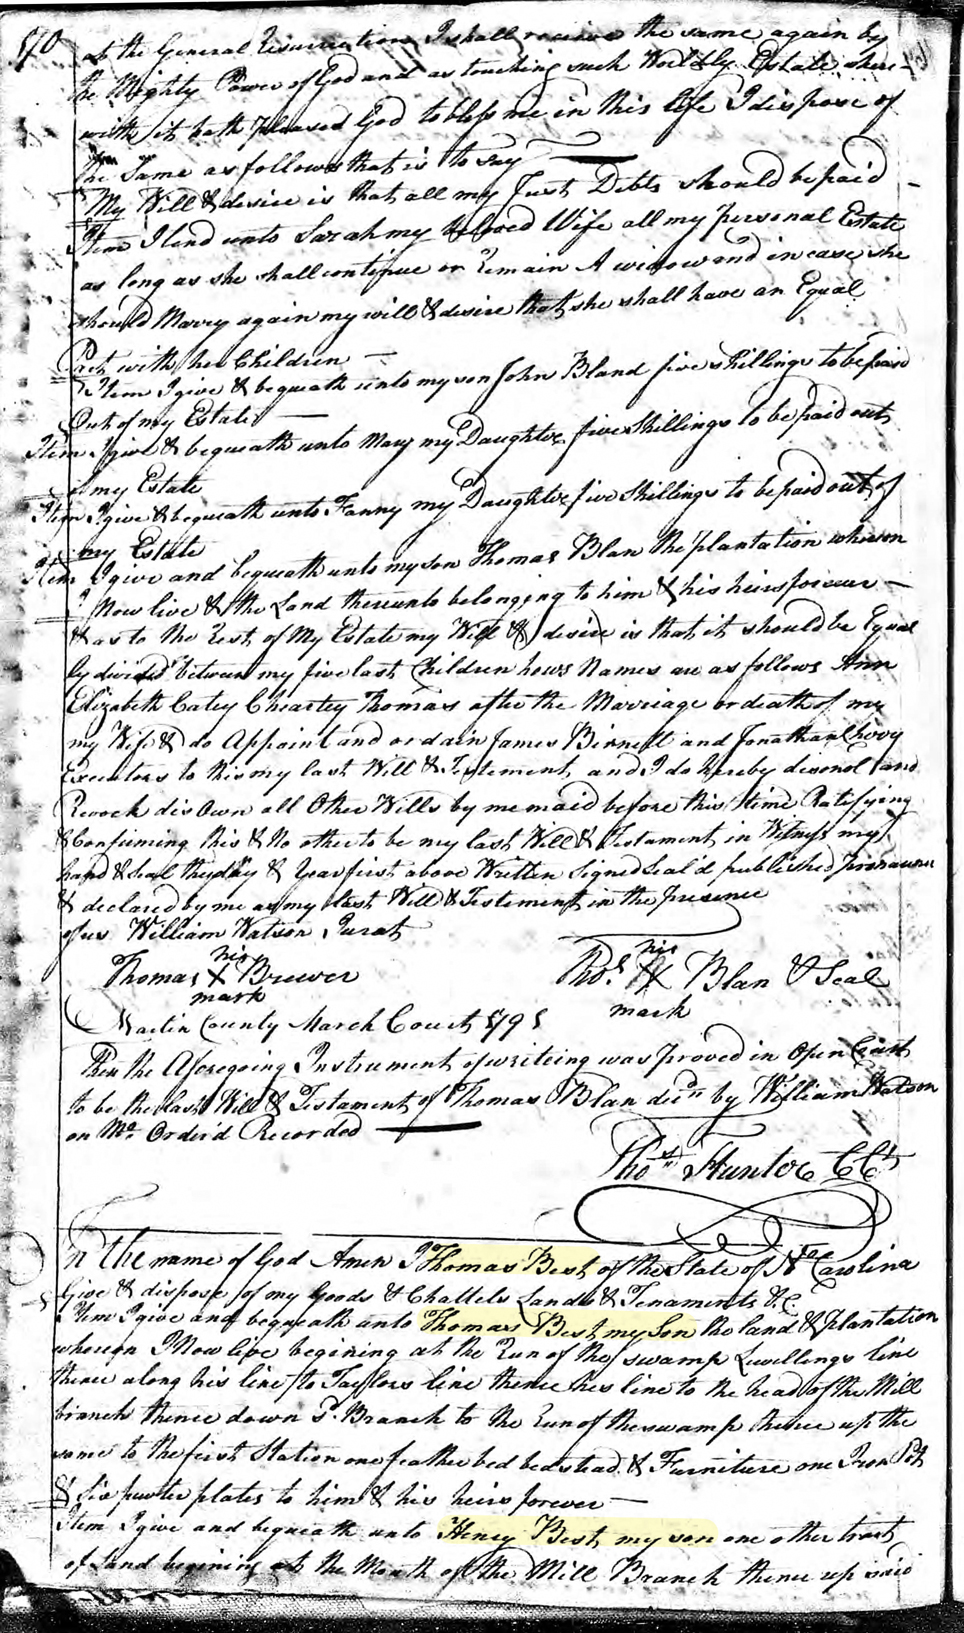 170
at the General Resurrection I shall receive the same again by
the Mighty Power of God and as touching such Worldly Estate where-
with it hath pleased God to bless me in this life I dispose of
the Same as follows that is to say
My Will & desire is that all my Just Debts should be paid
Item I lend unto Sarah my Beloved Wife all my personal Estate
as long as she shall continue or Remain A widow and in case she
should Marry again my will & desire that she shall have an Equal
Part with her Children
Item I give & bequeath unto my son John Bland five shillings to be paid
Out of my Estate
Item I give & bequeath unto Mary my Daughter five Shillings to be paid out
of my Estate
Item I give & bequeath unto Fanny my Daughter five Shillings to be paid out of
my Estate
Item I give and bequeath unto my son Thomas Blan the plantation whereon
I Now live & the Land thereunto belonging to him & his heirs forever
& as to the Rest of My Estate my Will & desire is that it should be Equal
ly divided between my five last Children hows Names are as follows Ann
Elizabeth Catey Cheartey Thomas after the Marriage or death of my
my Wife & do Appoint and ordain James Birnell and Jonathan
Executors to this my last Will & Testement and I do hereby and
Revock dis Own all Other Wills by me maid before this time Ratifying
& Confirming this & No other to be my last Will & Testament in Witness my
hand & Seal the day & Year first above Written Signed Seal'd published
& declared by me as my last Will & Testement in the presence
of us William Watson Jurat
Thomas his X Brewer
mark
Thos. his X Blan & Seal
mark
Martin County March Court 1791
Then the Aforegoing Instrument of writeing was proved in Open Court
to be the last Will & Testament of Thomas Blan decd by William Watson
on Mo. Order'd Recorded
Thos. Hunter CCt
In the name of God Amen I Thomas Best of the State of No Carolina
Give & dispose of my Goods & Chattels Lands & Tenaments &C
Item I give and bequeath unto Thomas Best my Son the land & plantation
whereon I Now live begining at the Run of the swamp Lewellings line
thence along his line to Taylors line thence his line to the head of the Mill
branch thence down sd. Branch to the Run of the swamp thence up the
same to the first Station one feather bed bedstead & Furniture one Iron Pot
& Six pewter plates to him & his heirs forever
Item I give and bequeath unto Henry Best my son one other tract
of land begining at the Mouth of the Mill Branch thence up said